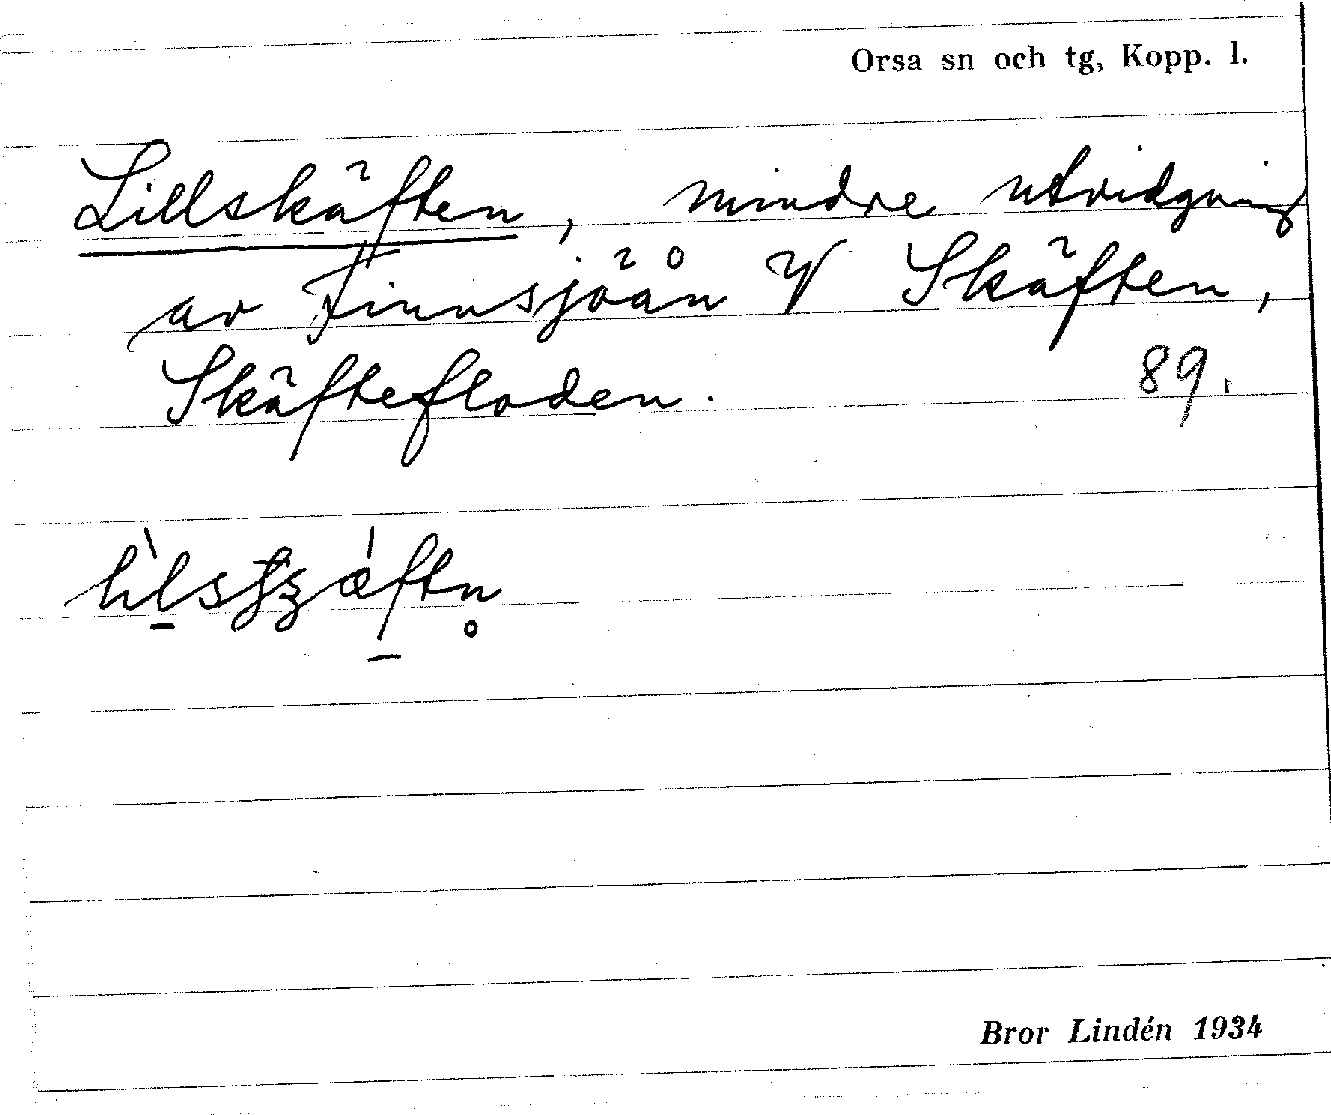 Orsa sn och tg, Kopp. l.
Lillskäften, mindre utvidgning
av Finnsjöån V Skäften,
Skäftefloden. 89.
Bror Lindén 1934